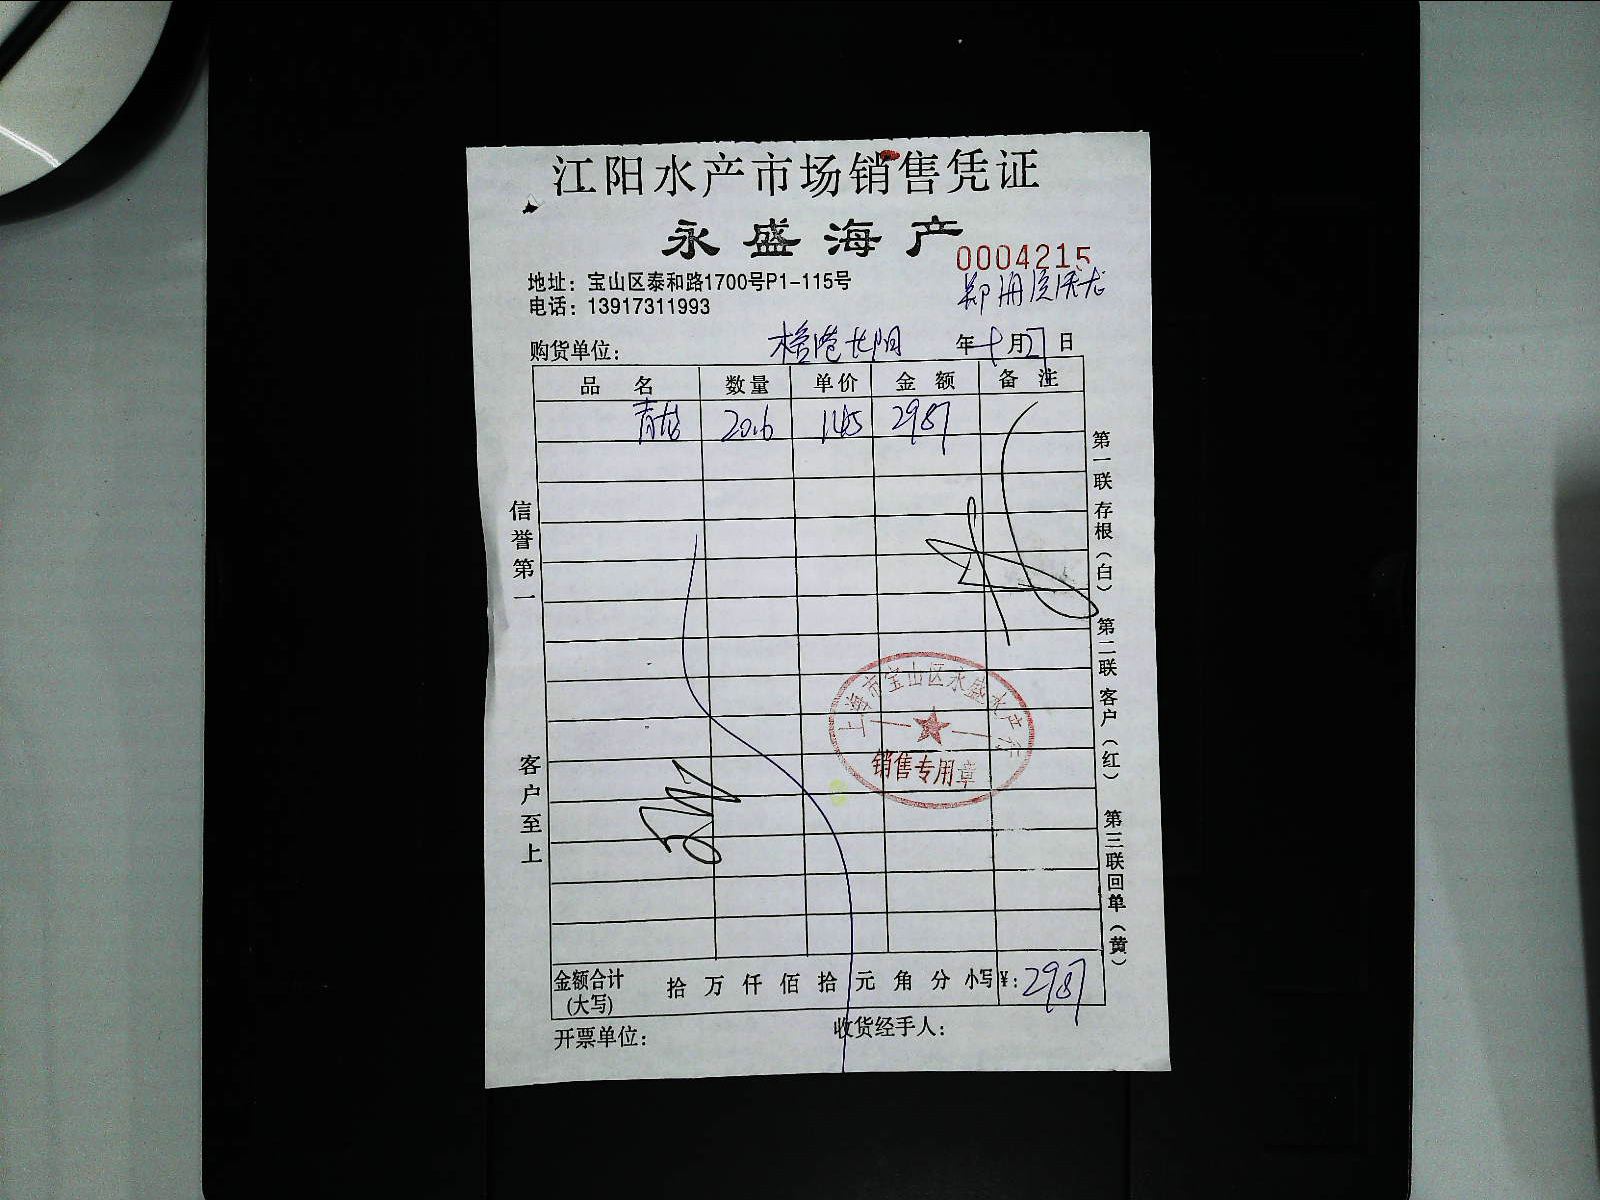 江阳水产市场销售凭证
永盛海产
0004215
地址：宝山区泰和路1700号P1-115号
电话：13917311993
购货单位： 年十月27日
品名 数量 单价 金额 备注
青龙 20.6 145 2987
信誉第一
客户至上
第一联存根（白） 第二联客户（红） 第三联回单（黄）
上海市宝山区永盛水产行
销售专用章
金额合计（大写） 拾 万 仟 佰 拾 元 角 分 小写¥：2987
开票单位： 收货经手人：